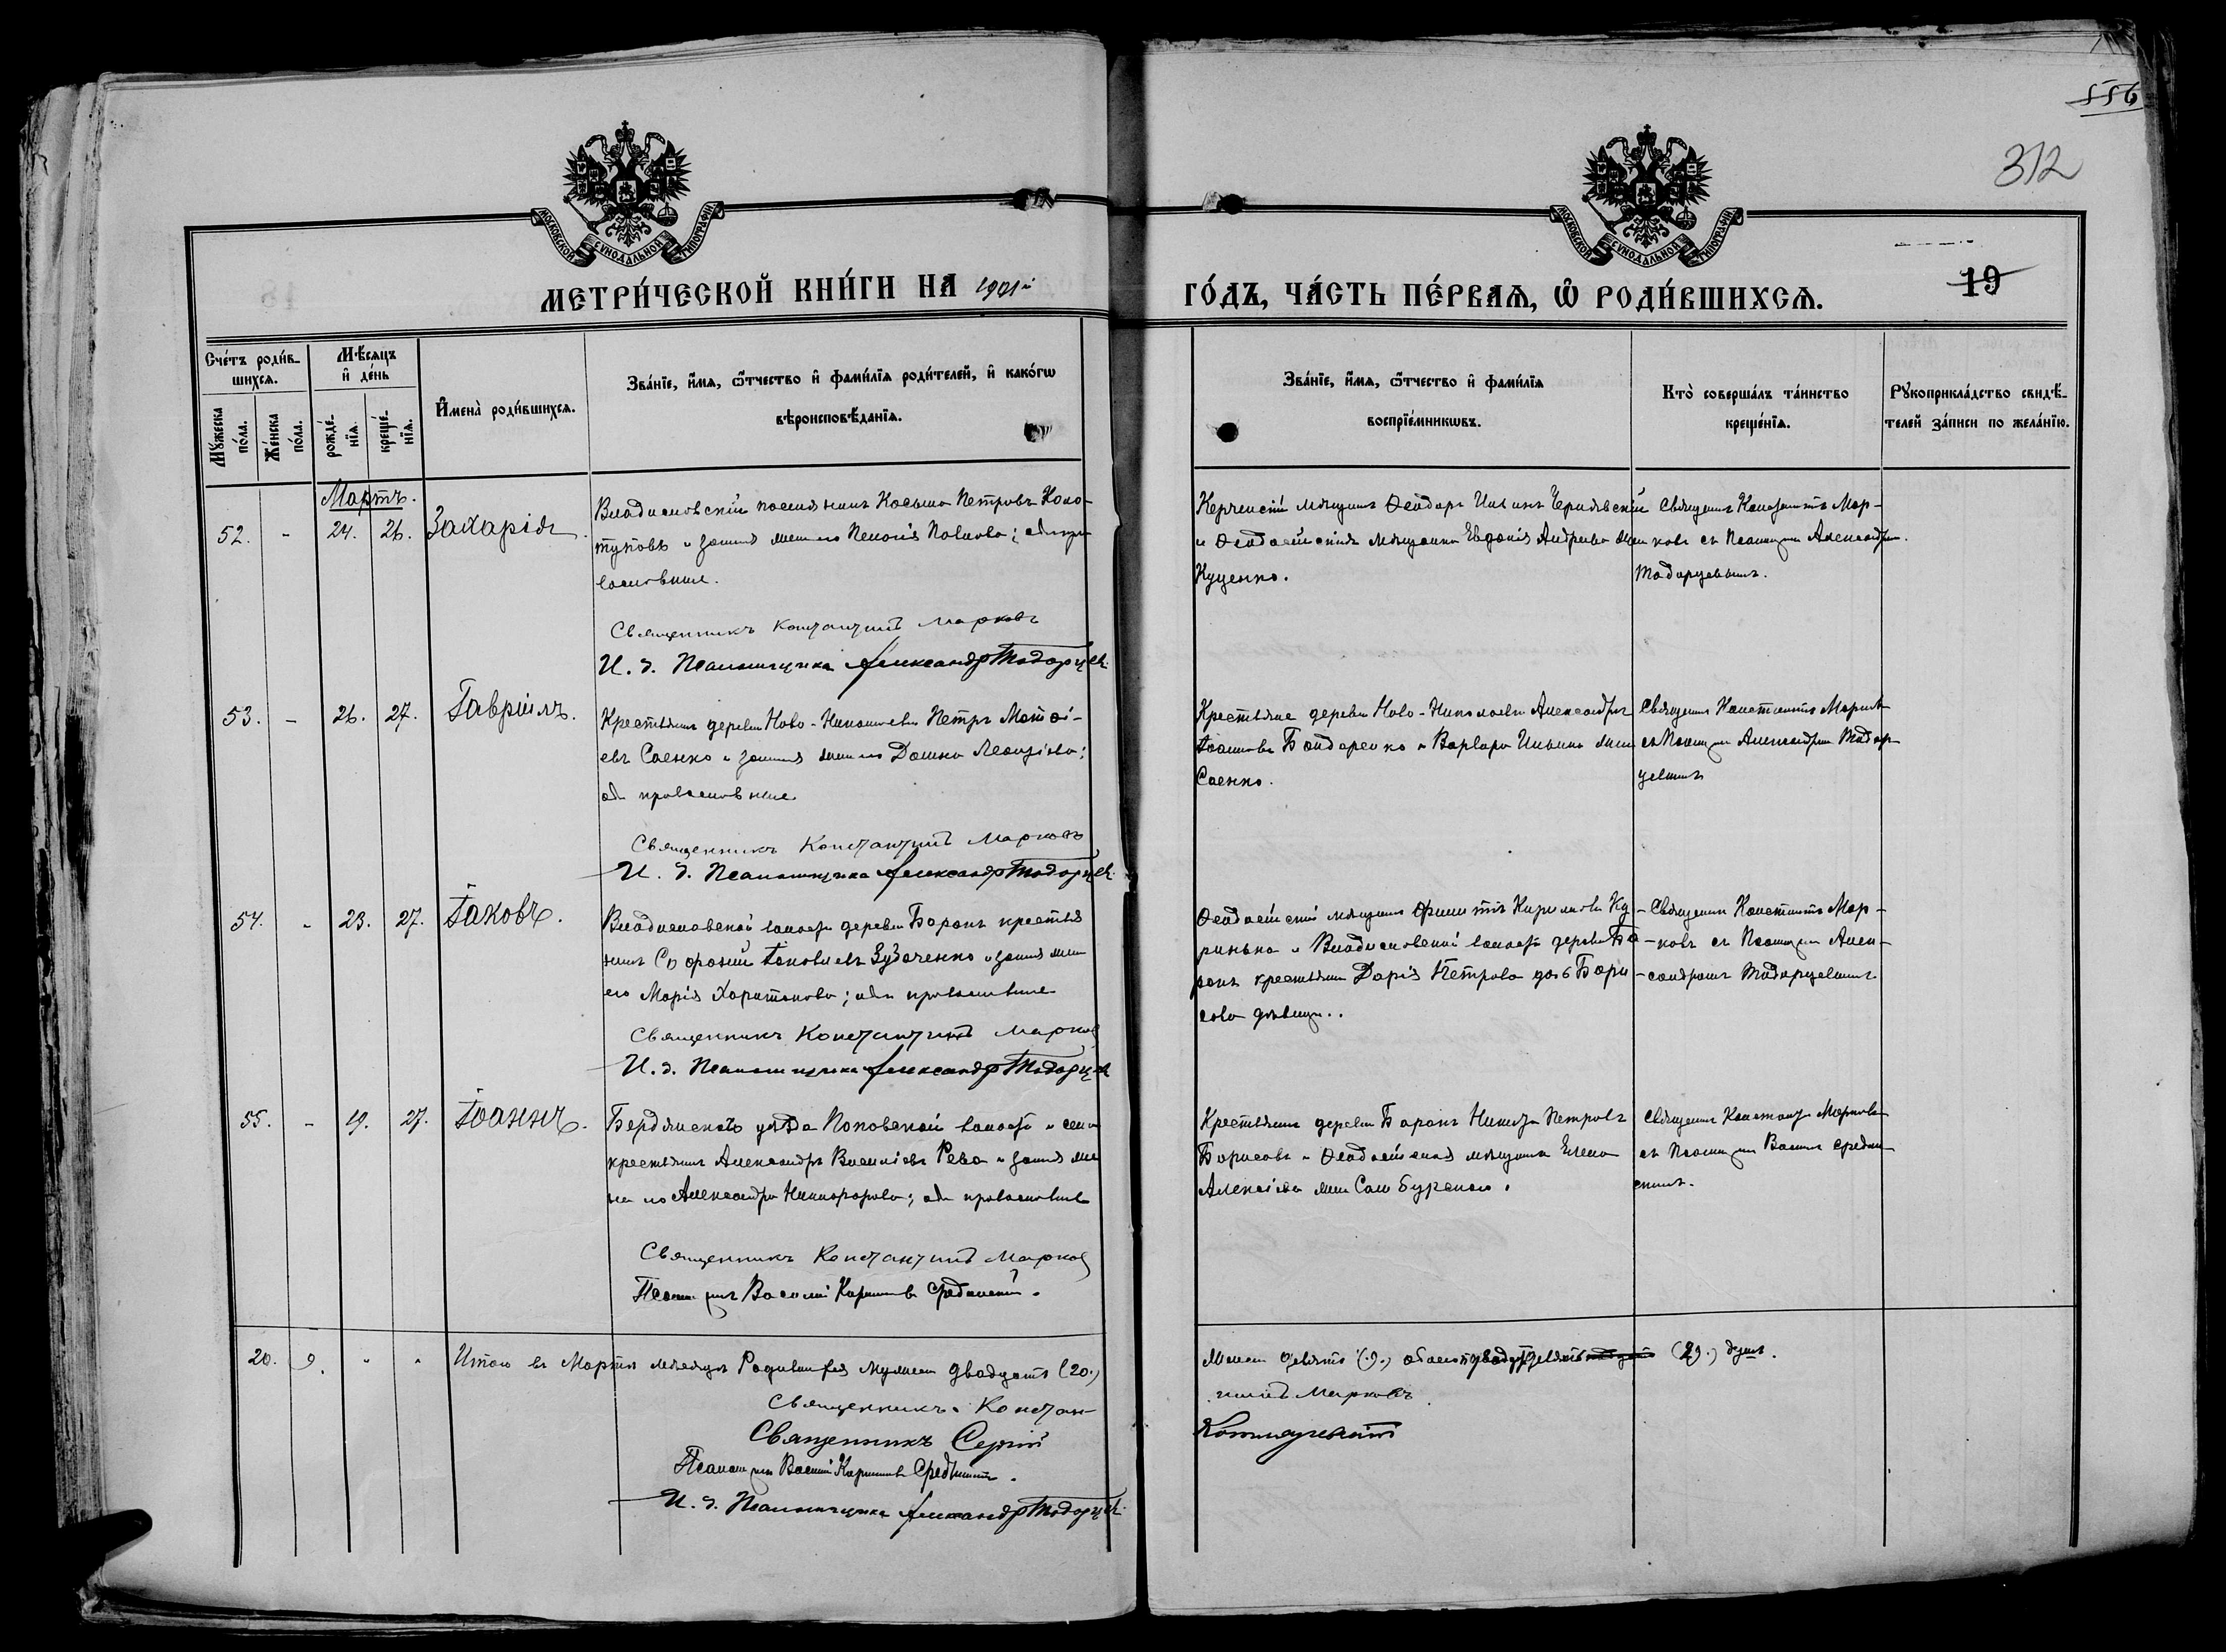 556
312
МОСКОВСКОЙ СУНОДАЛЬНОЙ ТИПОГРАФІИ
МОСКОВСКОЙ СУНОДАЛЬНОЙ ТИПОГРАФІИ
МЕТРИ́ЧЕСКОЙ КНИ́ГИ НА 1901й
ГО́ДЪ, ЧА́СТЬ ПЕ́РВАѦ, Ѽ РОДИ́ВШИХСѦ.
19
Сче́тъ роди́в-
шихсѧ.
Мꙋ́жеска по́ла.
Же́нска по́ла.
Мѣ́сѧцъ и҆ де́нь
рожде́-нїѧ.
креще́-нїѧ.
И҆мена̀ роди́вшихсѧ.
Зва́нїе, и҆́мѧ, ѻ҆́тчество и҆ фами́лїѧ роди́телей, и҆ како́гѡ
вѣроисповѣ́данїѧ.
Зва́нїе, и҆́мѧ, ѻ҆́тчество и҆ фами́лїѧ
воспрїе́мникѡвъ.
Кто̀ соверша́лъ та́инство
креще́нїѧ.
Рꙋкоприкла́дство свидѣ́-
телей за́писи по жела́нїю.
Мартъ.
52. - 24. 26. Захарія.
Владиславскій поселянинъ Косьма Петровъ Коло-
туповъ и законная жена его Пелагія Павлова; оба пра-
вославные.
Священникъ Константинъ Марковъ
И. д. Псаломщика Александръ Тодорцев
Керченскій мѣщанинъ Ѳеодоръ Ильинъ Чернявскій
и Ѳеодосійская мѣщанка Евдокія Андреева жена
Куценко.
Священникъ Константинъ Мар-
ковъ съ Псаломщ. Александром.
Тодорцевымъ.
53. - 26. 27. Гавріилъ.
Крестьянинъ деревни Ново-Николаевки Петръ Матѳі-
евъ Саенко и законная жена его Домна Леонтіева;
оба православные
Священникъ Константинъ Марковъ
И. д. Псаломщика Александръ Тодорцев
Крестьяне деревни Ново-Николаевки Александръ
Іоанновъ Бондаренко и Варвара Ильина жена
Саенко.
Священникъ Константинъ Марковъ
съ Псаломщ. Александромъ Тодор-
цевымъ
54. - 23. 27. Іаковъ.
Владиславской волости деревни Баракъ крестья-
нинъ Іаковлевъ Зубаченко и законная жена
его Марія Харитонова; оба православные
Священникъ Константинъ Марков
И. д. Псаломщика Александръ Тодорцев
Ѳеодосійскій мѣщанинъ Кирилловъ Ку-
ринька и Владиславской волости деревни Ба-
ракъ крестьянина Дарія Петрова дочь Бори-
сова дѣвица..
Священникъ Константинъ Мар-
ковъ съ Псаломщ. Алек-
сандромъ Тодорцевымъ
55. - 19. 27. Іоаннъ.
Бердянскаго уѣзда Поповской волости и села
крестьянинъ Александръ Василіевъ Рева и законная же-
на его Александра Никифорова; оба православные
Священникъ Константинъ Марков
Псаломщикъ Василій Средынскій.
Крестьянинъ деревни Баракъ Никита Петровъ
Борисовъ и Ѳеодосійская мѣщанка Елена
Алексіева жена Самбурская.
Священникъ Констант. Марковъ
съ Псаломщ. Василіемъ Средын-
скимъ.
20. 9. " " Итого въ Мартѣ мѣсяцѣ Родившихся мужеска двадцать (20.)
женска девять (9.) обоего двадцать девять (29.) душъ.
Священникъ Констан-
тинъ Марковъ
Священникъ Сергій
Псаломщикъ Василій Средынскій.
И. д. Псаломщика Александръ Тодорцев